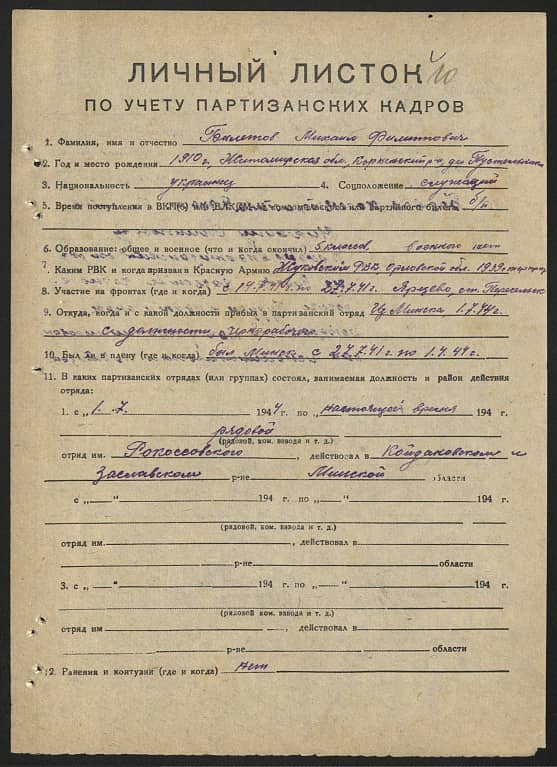 ЛИЧНЫЙ ЛИСТОК 40
ПО УЧЕТУ ПАРТИЗАНСКИХ КАДРОВ
1. Фамилия, имя и отчество Билетов Михаил Филиппович
2. Год и место рождения 1910 г. Житомирская обл.
3. Национальность украинец 4. Соцположение служащий
5. Время поступления в ВКП(б) или ВЛКСМ и партийного билета б/п
6. Образование: общее и военное (что и когда окончил) 5 классов, военного нет
7. Каким РВК и когда призван в Красную Армию Жуковский РВК Орловской обл. 1939 г.
8. Участие на фронтах (где и когда) с 14.7.41 по 27.7.41 г. Ярцево, ст.
9. Откуда, когда и с какой должности прибыл в партизанский отряд Из Минска 1.7.44 г.
с должности чернорабочего
10. Был ли в плену (где и когда) был Минск с 27.7.41 г. по 1.4.44 г.
11. В каких партизанских отрядах (или группах) состоял, занимаемая должность и район действия
отряда:
1. с „1. 7. 1944 г. по „настоящее время 194 г.
рядовой
(рядовой, ком. взвода и т. д.)
отряд им. Рокоссовского, действовал в Койдановском и
Заславском р-не Минской области
с „ “ 194 г. по „ “ 194 г.
(рядовой, ком. взвода и т. д.)
отряд им. , действовал в
р-не области
3. с „ “ 194 г. по „ “ 194 г.
(рядовой, ком. взвода и т. д.)
отряд им. , действовал в
р-не области
12. Ранения и контузии (где и когда) нет